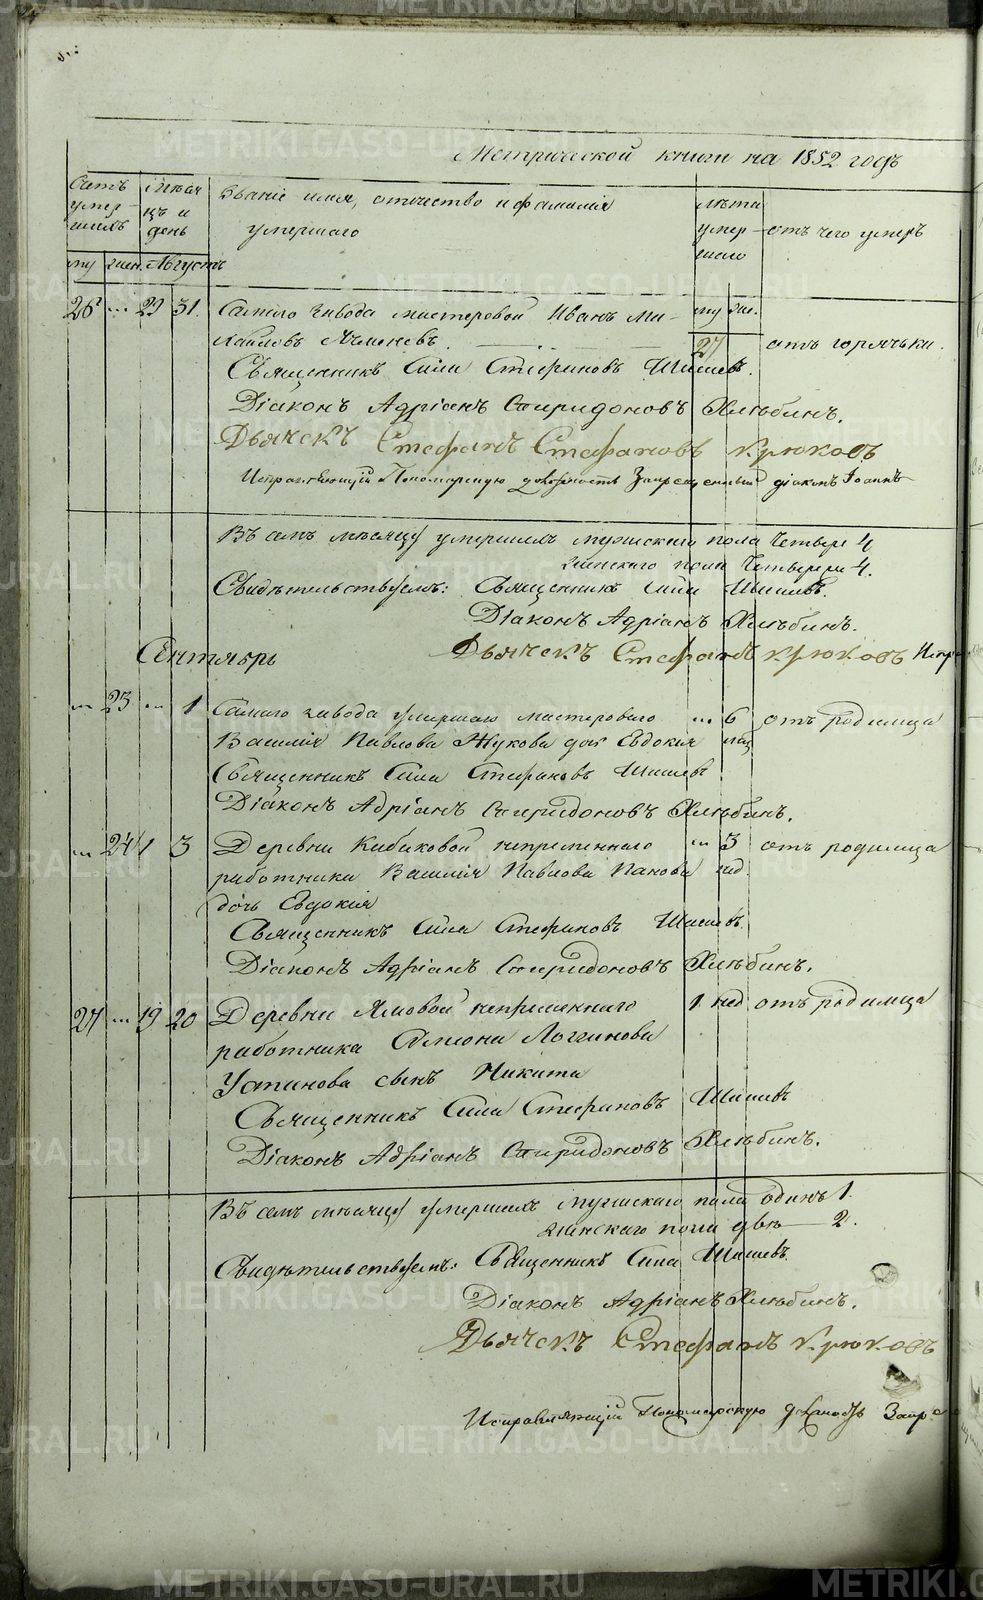 Метрической книги на 1852 годъ
Счетъ умершихъ
Мѣсяцъ и день
Званіе имя, отчество и фамилія умершаго
лѣта умершаго
отъ чего умеръ
му жен. Августъ
26 ... 29 31. Самаго завода мастеровой Иванъ Ми-
му же.
хайловъ 27 отъ горячьки.
Священникъ Сила Стефановъ Шишевъ.
Діаконъ Адріанъ Спиридоновъ Хлѣбинъ.
Дьячекъ Стефанъ Стефановъ Крюковъ
Исправляющій Пономарскую должность Запрещенный діаконъ Іоаннъ
Въ семъ мѣсяцѣ умершихъ мужескаго пола Четверо 4
женскаго пола Четверо 4.
Свидѣтельствуемъ: Священникъ Сила Шишевъ.
Діаконъ Адріанъ Хлѣбинъ.
Сентябрь
Дьячекъ Стефанъ Крюковъ Испр
... 23 ... 1 Самаго завода умершаго мастероваго ... 6 отъ родимца
Василія Павлова Жукова дочь Евдокия мѣс
Священникъ Сила Стефановъ Шишевъ
Діаконъ Адріанъ Спиридоновъ Хлѣбинъ.
... 24 1 3 Деревни Кабиковой непременнаго ... 3 отъ родимца
работника Василія Павлова Панова нед.
дочь Евдокия
Священникъ Сила Стефановъ Шишевъ
Діаконъ Адріанъ Спиридоновъ Хлѣбинъ.
27 ... 19 20 Деревни непременнаго 1 нед отъ родимца
работника Самсона Логгинова
Устинова сынъ Никита
Священникъ Сила Стефановъ Шишевъ
Діаконъ Адріанъ Спиридоновъ Хлѣбинъ.
Въ семъ мѣсяцѣ умершихъ мужескаго пола одинъ 1.
женскаго пола двѣ 2.
Свидѣтельствуемъ: Священникъ Сила Шишевъ.
Діаконъ Адріанъ Хлѣбинъ.
Дьячекъ Стефанъ Крюковъ
Исправляющій Пономарскую должность Запре
METRIKI.GASO-URAL.RU